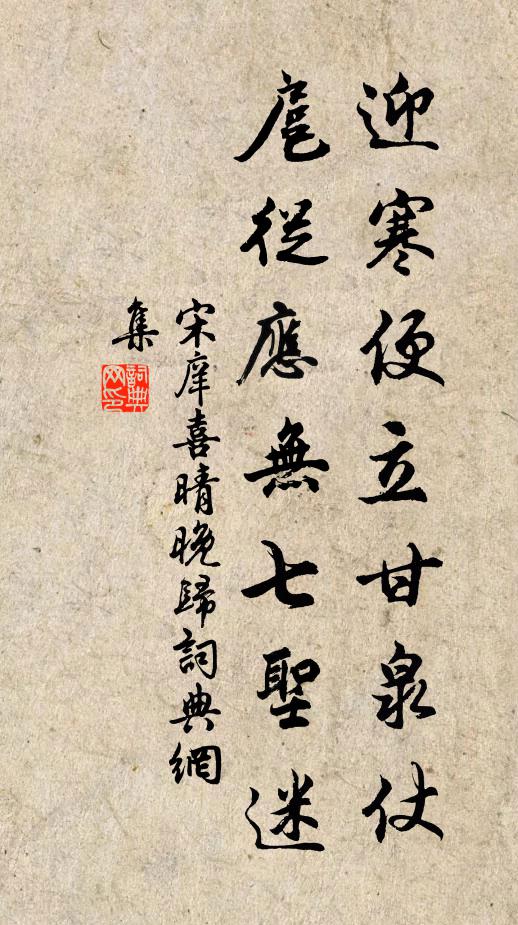 迎寒便立甘泉仗
扈從應無七聖迷
宋庠喜晴晚歸詞典網
集
詞典网印